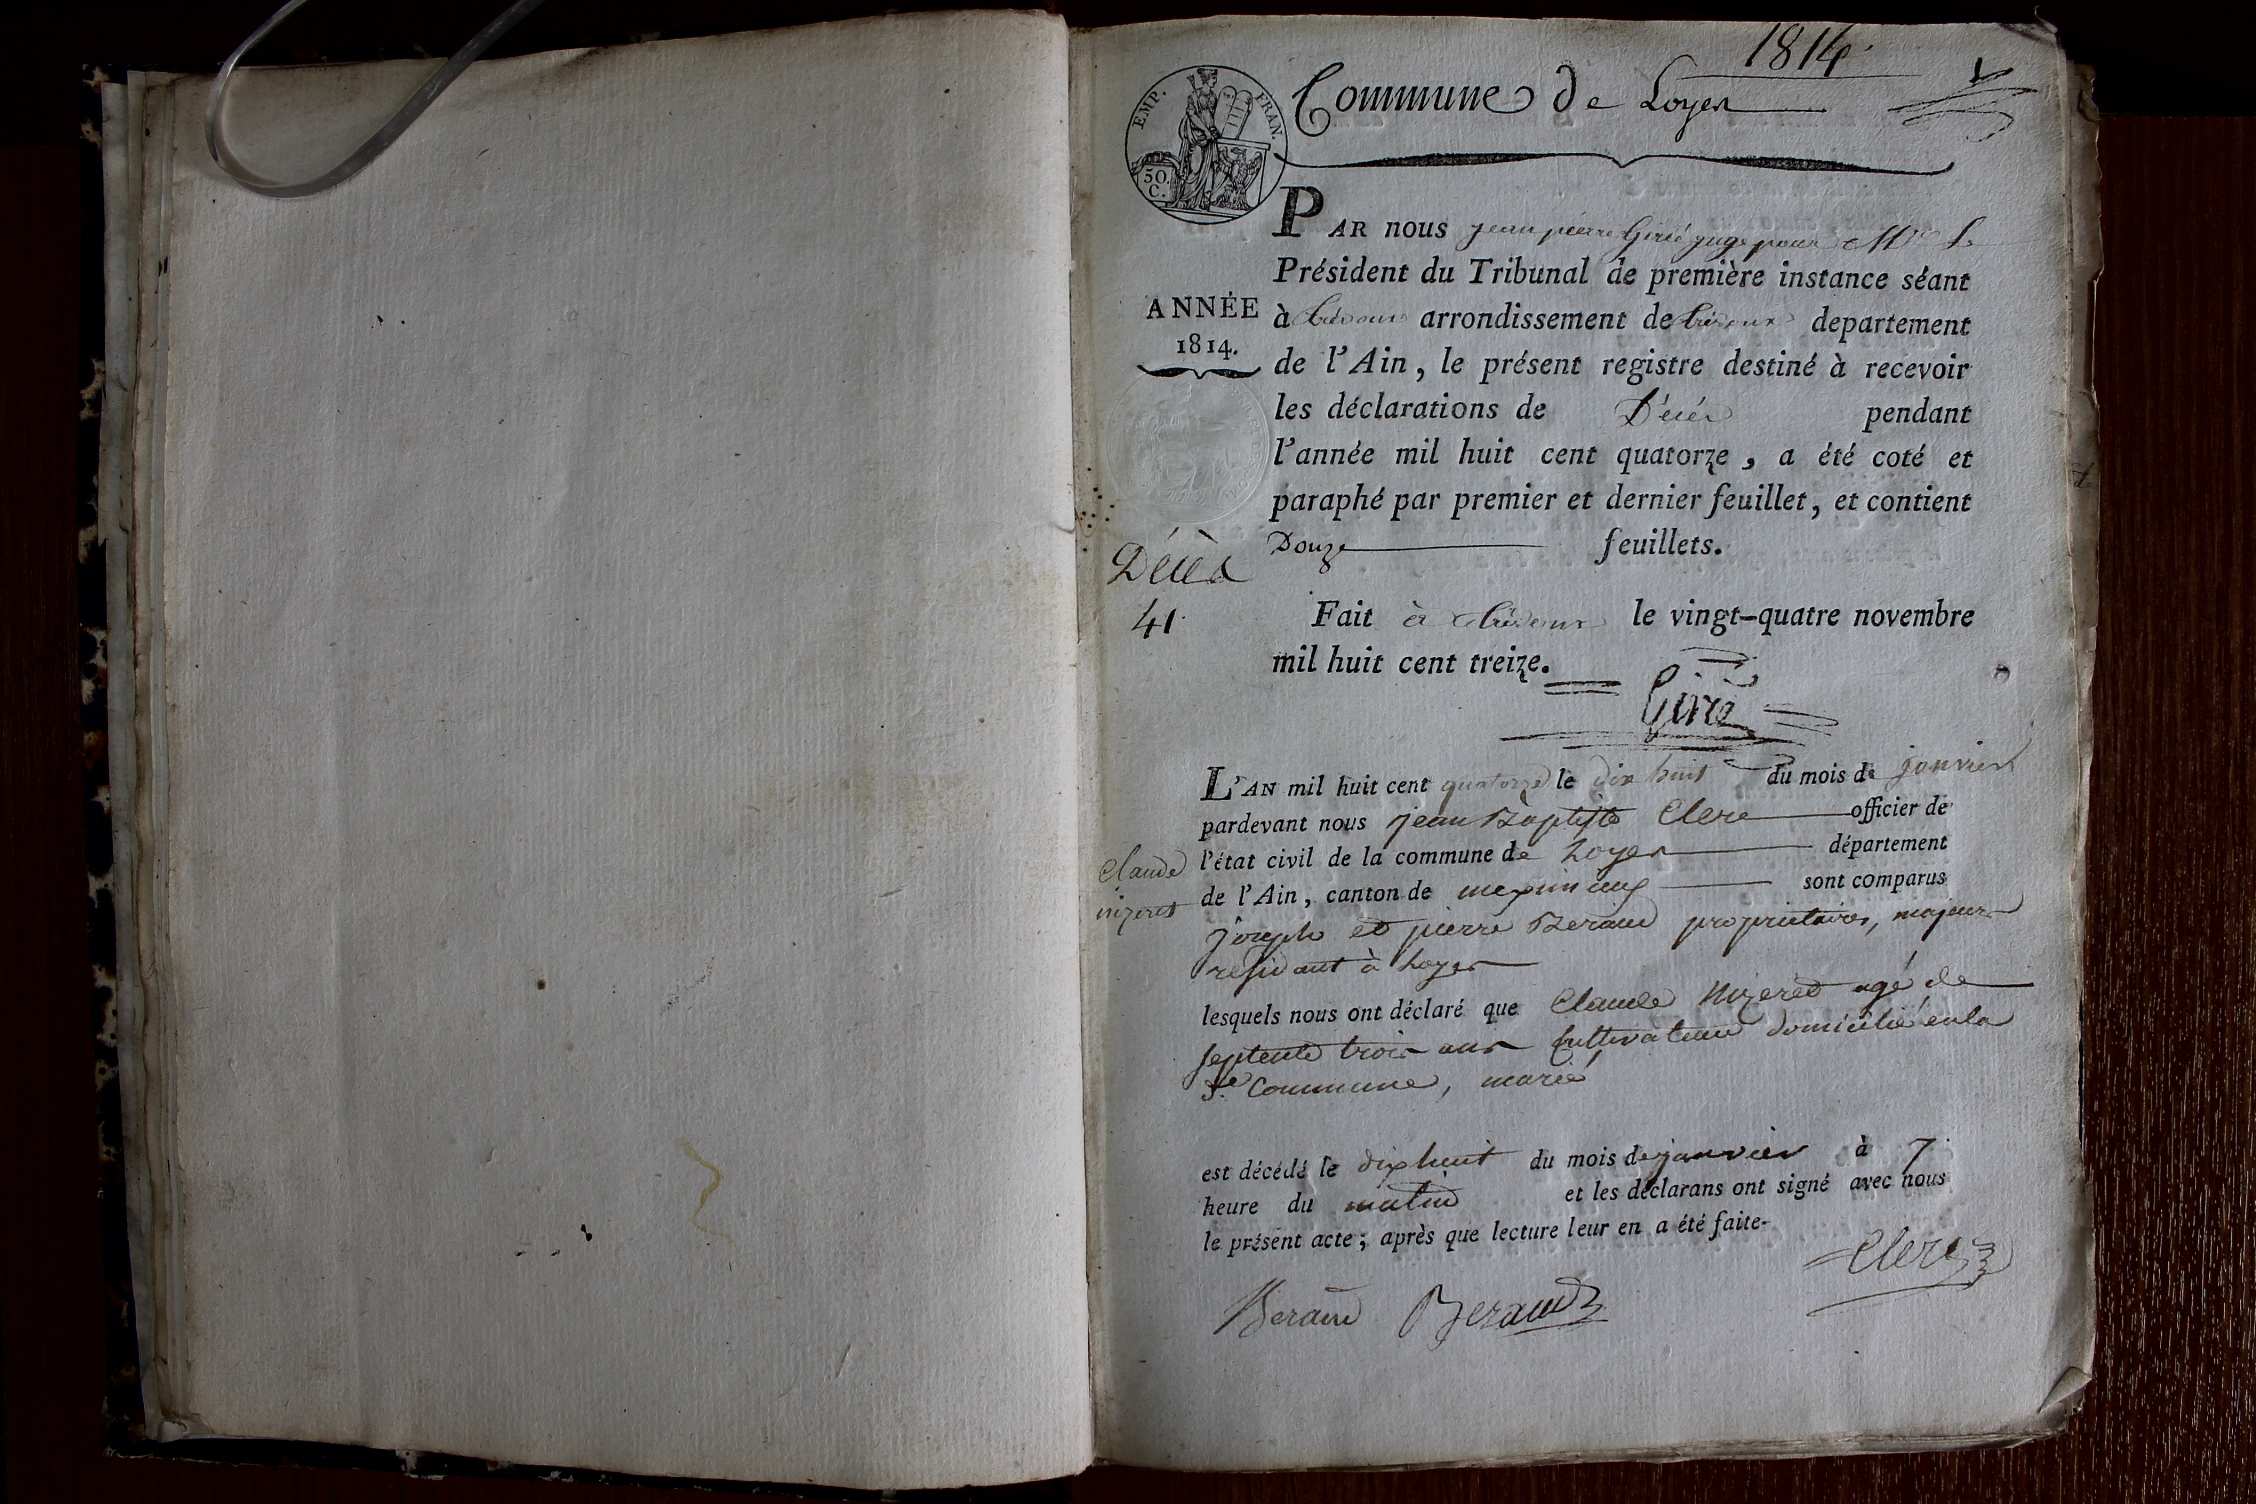 1814.
Commune de Loyes
EMP. FRAN.
50 C.
PAR nous jean pierre Girié juge pour Mr. le
Président du Tribunal de première instance séant
ANNÉE
1814.
à trévoux arrondissement de trévoux departement
de l'Ain, le présent registre destiné à recevoir
les déclarations de Décés pendant
l'année mil huit cent quatorze, a été coté et
paraphé par premier et dernier feuillet, et contient
Douze feuillets.
Décès
41.
Fait à trévoux le vingt-quatre novembre
mil huit cent treize.
Girié
L'AN mil huit cent quatorze le dix huit du mois de janvier
pardevant nous jean Baptiste Clerc officier de
l'état civil de la commune de Loyes département
de l'Ain, canton de meximieux sont comparus
Claude
nizeret
joseph et pierre Beraud proprietaires, majeurs
residant à Loyes
lesquels nous ont déclaré que Claude Nizeret agé de
septente trois ans Cultivateur domicilié en la
de. Commune, marié
est décédé le dix huit du mois de janvier à 7
heure du matin et les déclarans ont signé avec nous
le présent acte; après que lecture leur en a été faite.
Clerc
Beraud Beraud